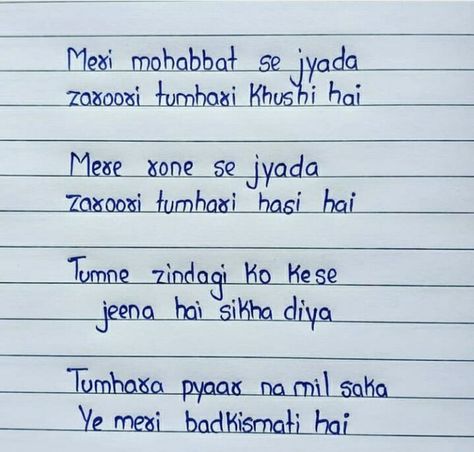 Meri mohabbat se jyada
zaroori tumhari khushi hai
Mere rone se jyada
zaroori tumhari hasi hai
Tumne zindagi ko kese
jeena hai sikha diya
Tumhara pyaar na mil saka
Ye meri badkismati hai